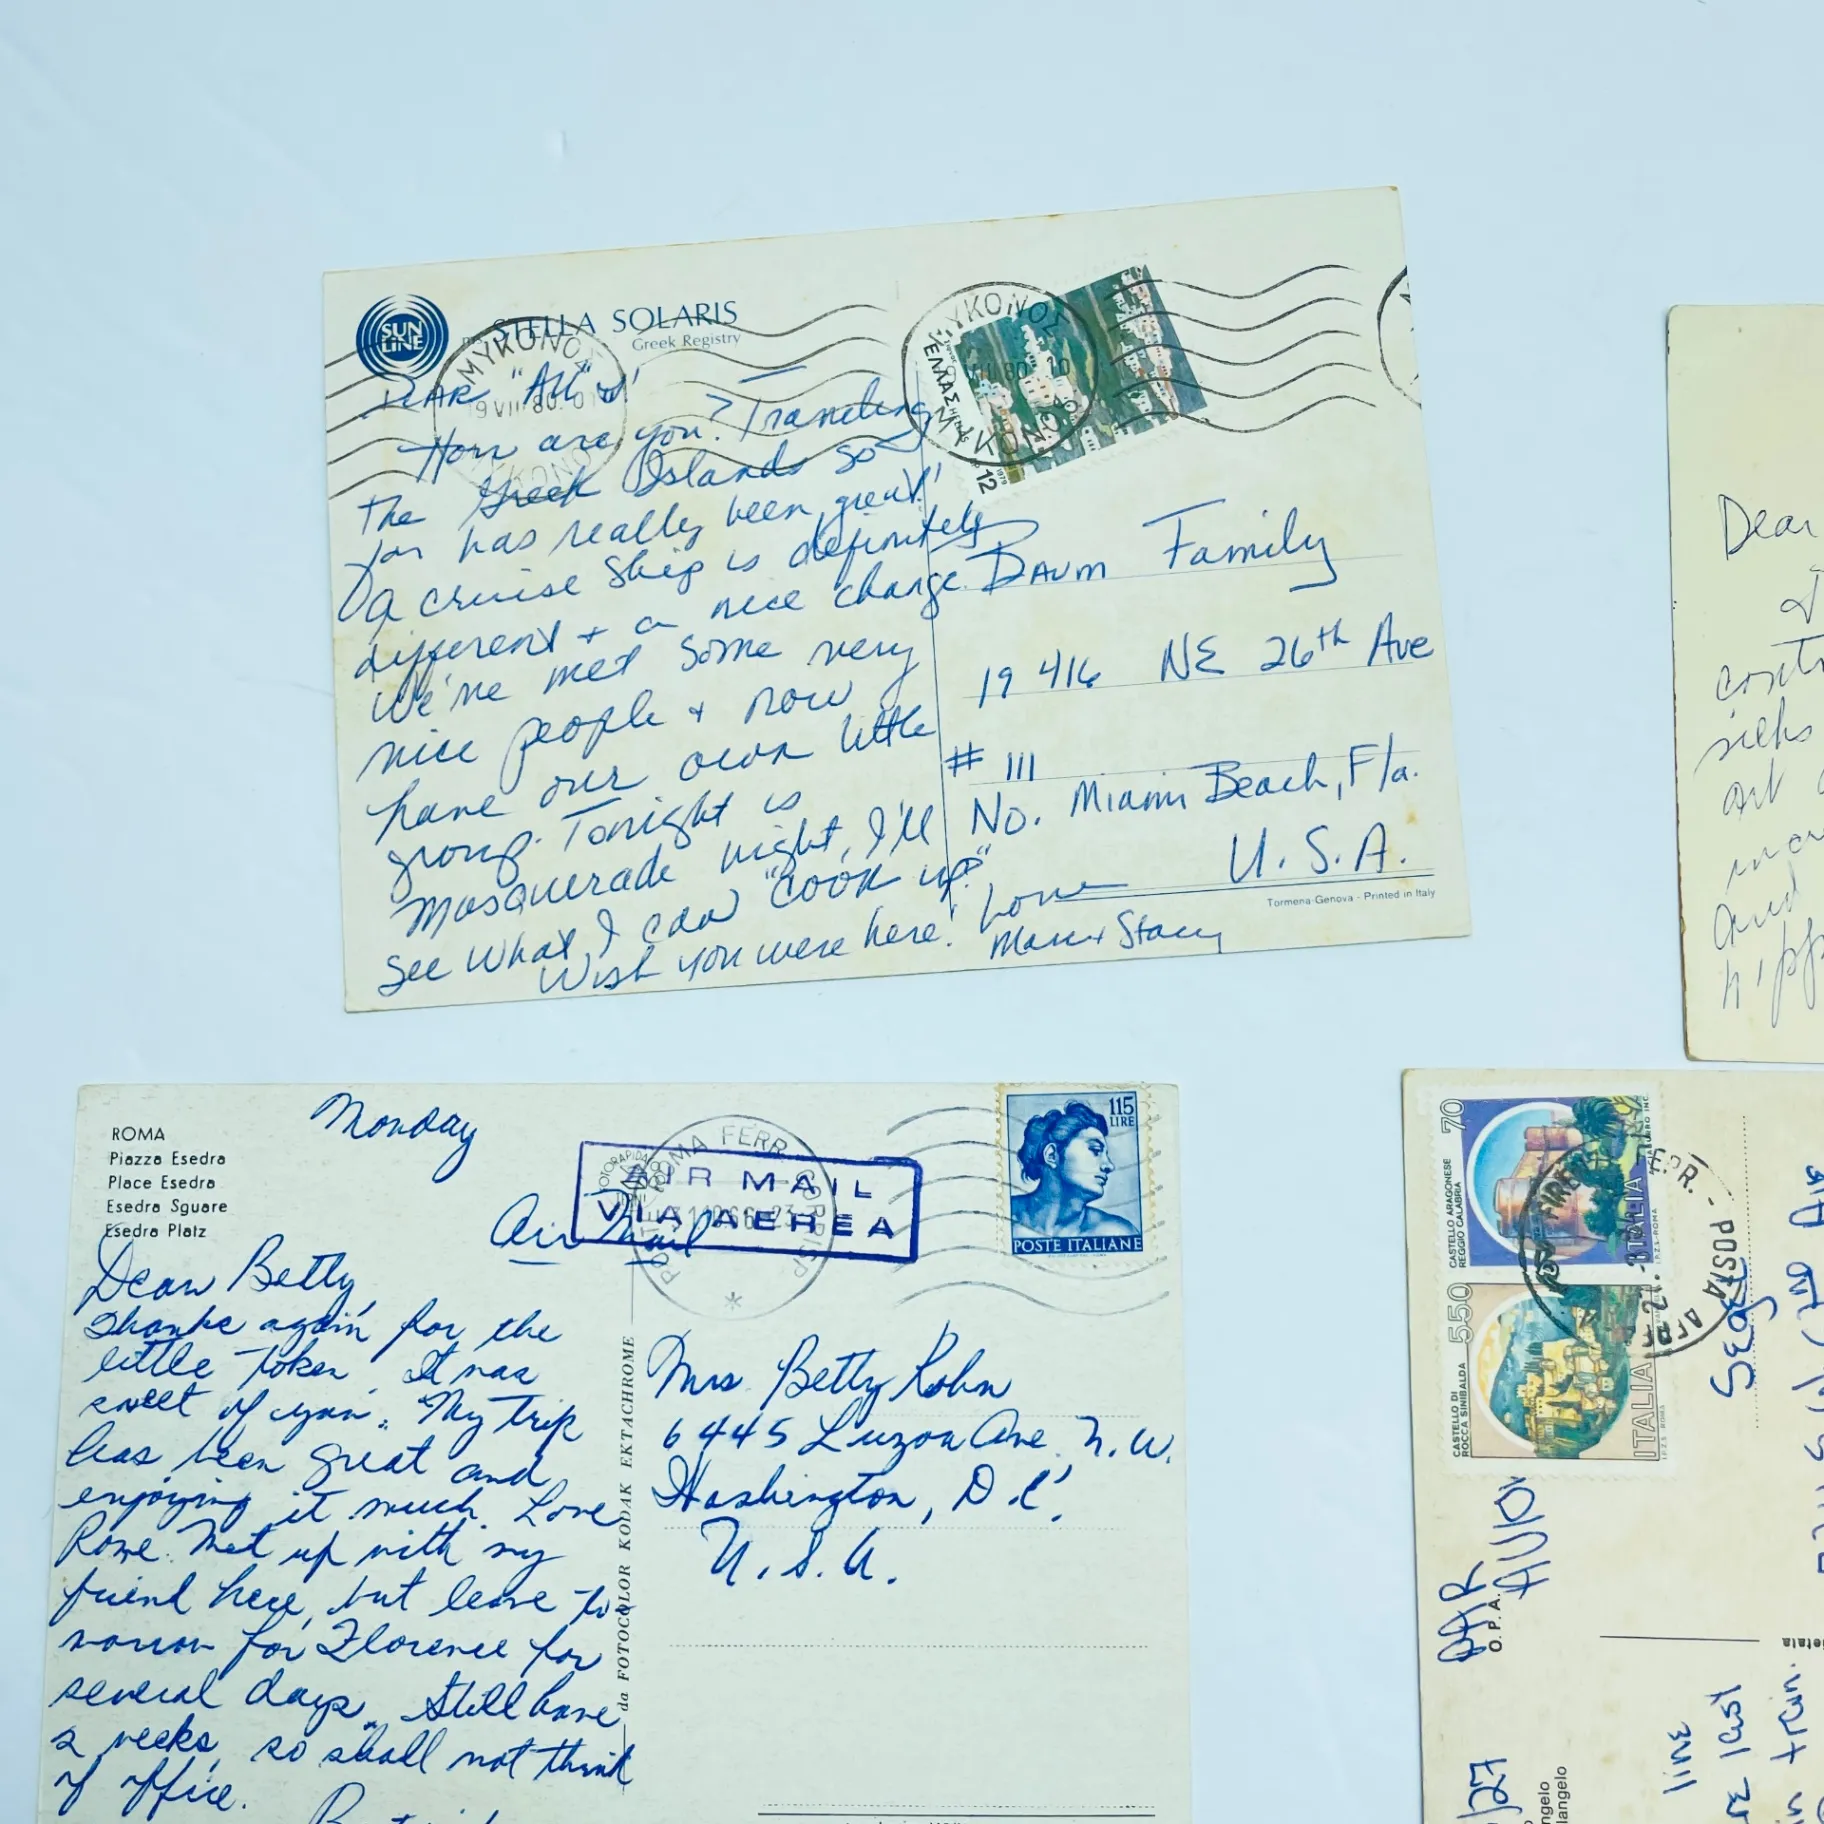 SUN
LINE
STELLA SOLARIS
Greek Registry
MYKONOS
9 VIII 80. 10
DEAR "All"
How are you? Traveling
the Greek Islands so
far has really been great!
A cruise ship is definitely
different + a nice change.
We've met some very
nice people + now
have our own little
group. Tonight is
Masquerade night, I'll
see what I can "cook up."
Wish you were here!
Love
Stacy
ΜΥΚΟΝΟΣ
VIII 80 10
ΜΥΚΟΝΟΣ
ΕΛΛΑΣ HELLAS
12
1979
Daum Family
19416 NE 26th Ave
# 111
No. Miami Beach, Fla.
U.S.A.
Tormena-Genova - Printed in Italy
ROMA
Piazza Esedra
Place Esedra
Esedra Sguare
Esedra Platz
Monday
Air Mail
AIR MAIL
VIA AEREA
ROMA FERR. CORRISP
115
LIRE
POSTE ITALIANE
Dear Betty,
Thanks again for the
little token. It was
sweet of you. My trip
has been great and
enjoying it much. Love
Rome. Met up with my
friend here, but leave to-
morrow for Florence for
several days. Still have
2 weeks, so shall not think
of office.
da FOTOCOLOR KODAK EKTACHROME
Mrs Betty Kohn
6445 Luzon Ave. N.W.
Washington, D.C.
U.S.A.
Dear
silks
art
and
70
CASTELLO ARAGONESE
REGGIO CALABRIA
ITALIA
I.P.Z.S. ROMA
550
CASTELLO DI
ROCCA SINIBALDA
ITALIA
I.P.Z.S. ROMA
POSTA
PAR
AVION
O.P.A.
line
train.
ngelo
langelo